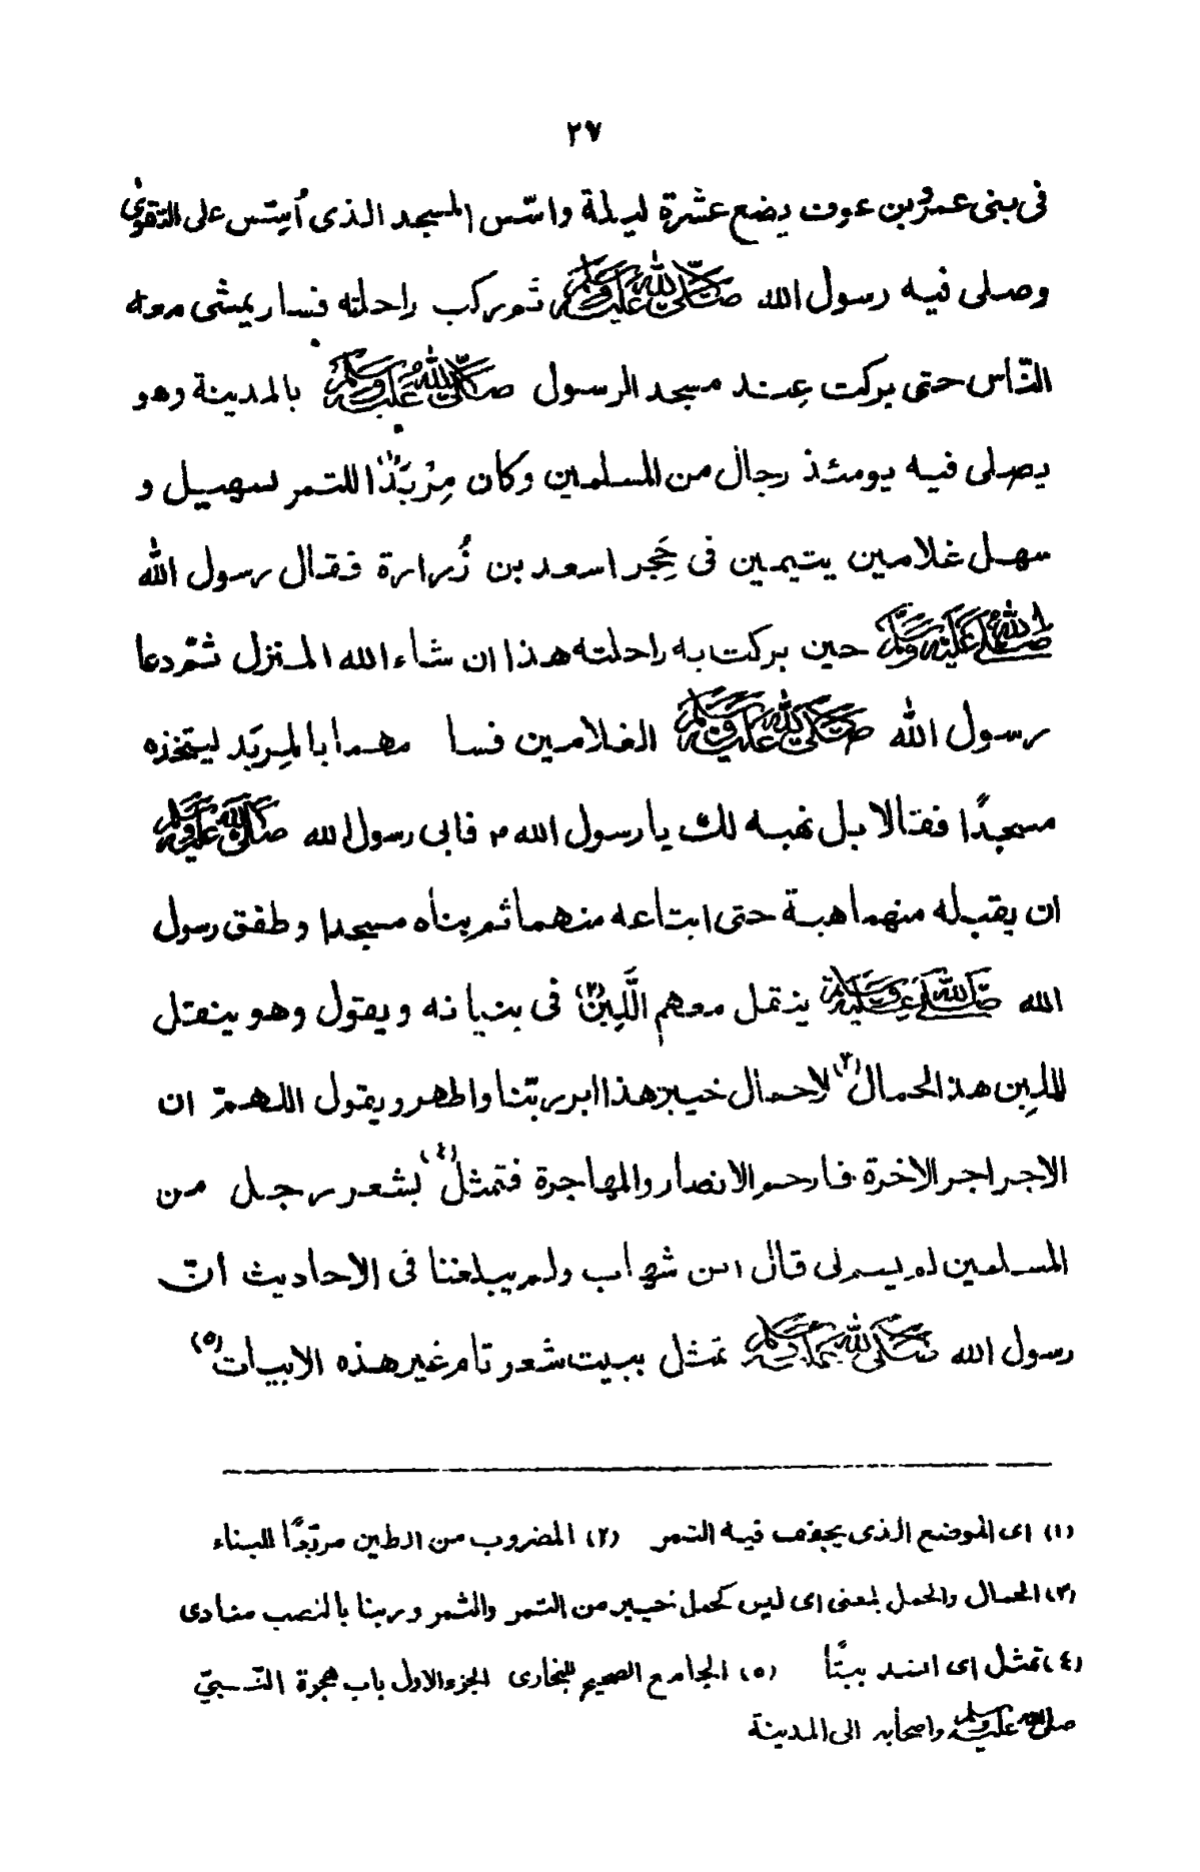 ٢٧
فى بنى عمرو بن عوف بضع عشرة ليلة واسّس المسجد الذى اُسِّس على التقوىٰ
وصلى فيه رسول الله ﷺ ثم ركب راحلته فسار يمشى معه
النّاس حتى بركت عند مسجد الرسول ﷺ بالمدينة وهو
يصلى فيه يومئذ رجال من المسلمين وكان مِرْبَدًا⁽¹⁾ للتمر لسهيل و
سهل غلامين يتيمين فى حَجر اسعد بن زُرارة فقال رسول الله
ﷺ حين بركت به راحلته هذا ان شاء الله المنزل ثمّ دعا
رسول الله ﷺ الغلامين فسا مهما بالمِربَد ليتخذه
مسجدًا فقالا بل نهبه لك يا رسول الله م فابى رسول الله ﷺ
ان يقبله منهما هبة حتى ابتاعه منهما ثم بناه مسجدا وطفق رسول
الله ﷺ ينقل معهم اللَّبِنَ (٢) فى بنيانه ويقول وهو ينقل
للبِن هذا الحمال (٣) لاحمال خيبز هذا ابر ربّنا واطهر ويقول اللهمّ ان
الاجر اجر الاخرة فارحم الانصار والمهاجرة فتمثل (٤) بشعر رجل من
المسلمين لم يسم لى قال ابن شهاب ولم يبلغنا فى الاحاديث انّ
رسول الله ﷺ تمثل ببيت شعر تام غير هذه الابيات (٥)
(١) اى الموضع الذى يجفف فيه التمر (٢) المضروب من الطين مربّعًا للبناء
(٣) الحمال والحمل بمعنى اى ليس كحمل خيبر من التمر والثمر وربنا بالنصب منادى
(٤) تمثل اى انشد بيتًا (٥) الجامع الصحيح للبخارى الجزء الاول باب هجرة النّبىّ
صلى الله عليه وسلم واصحابه الى المدينة